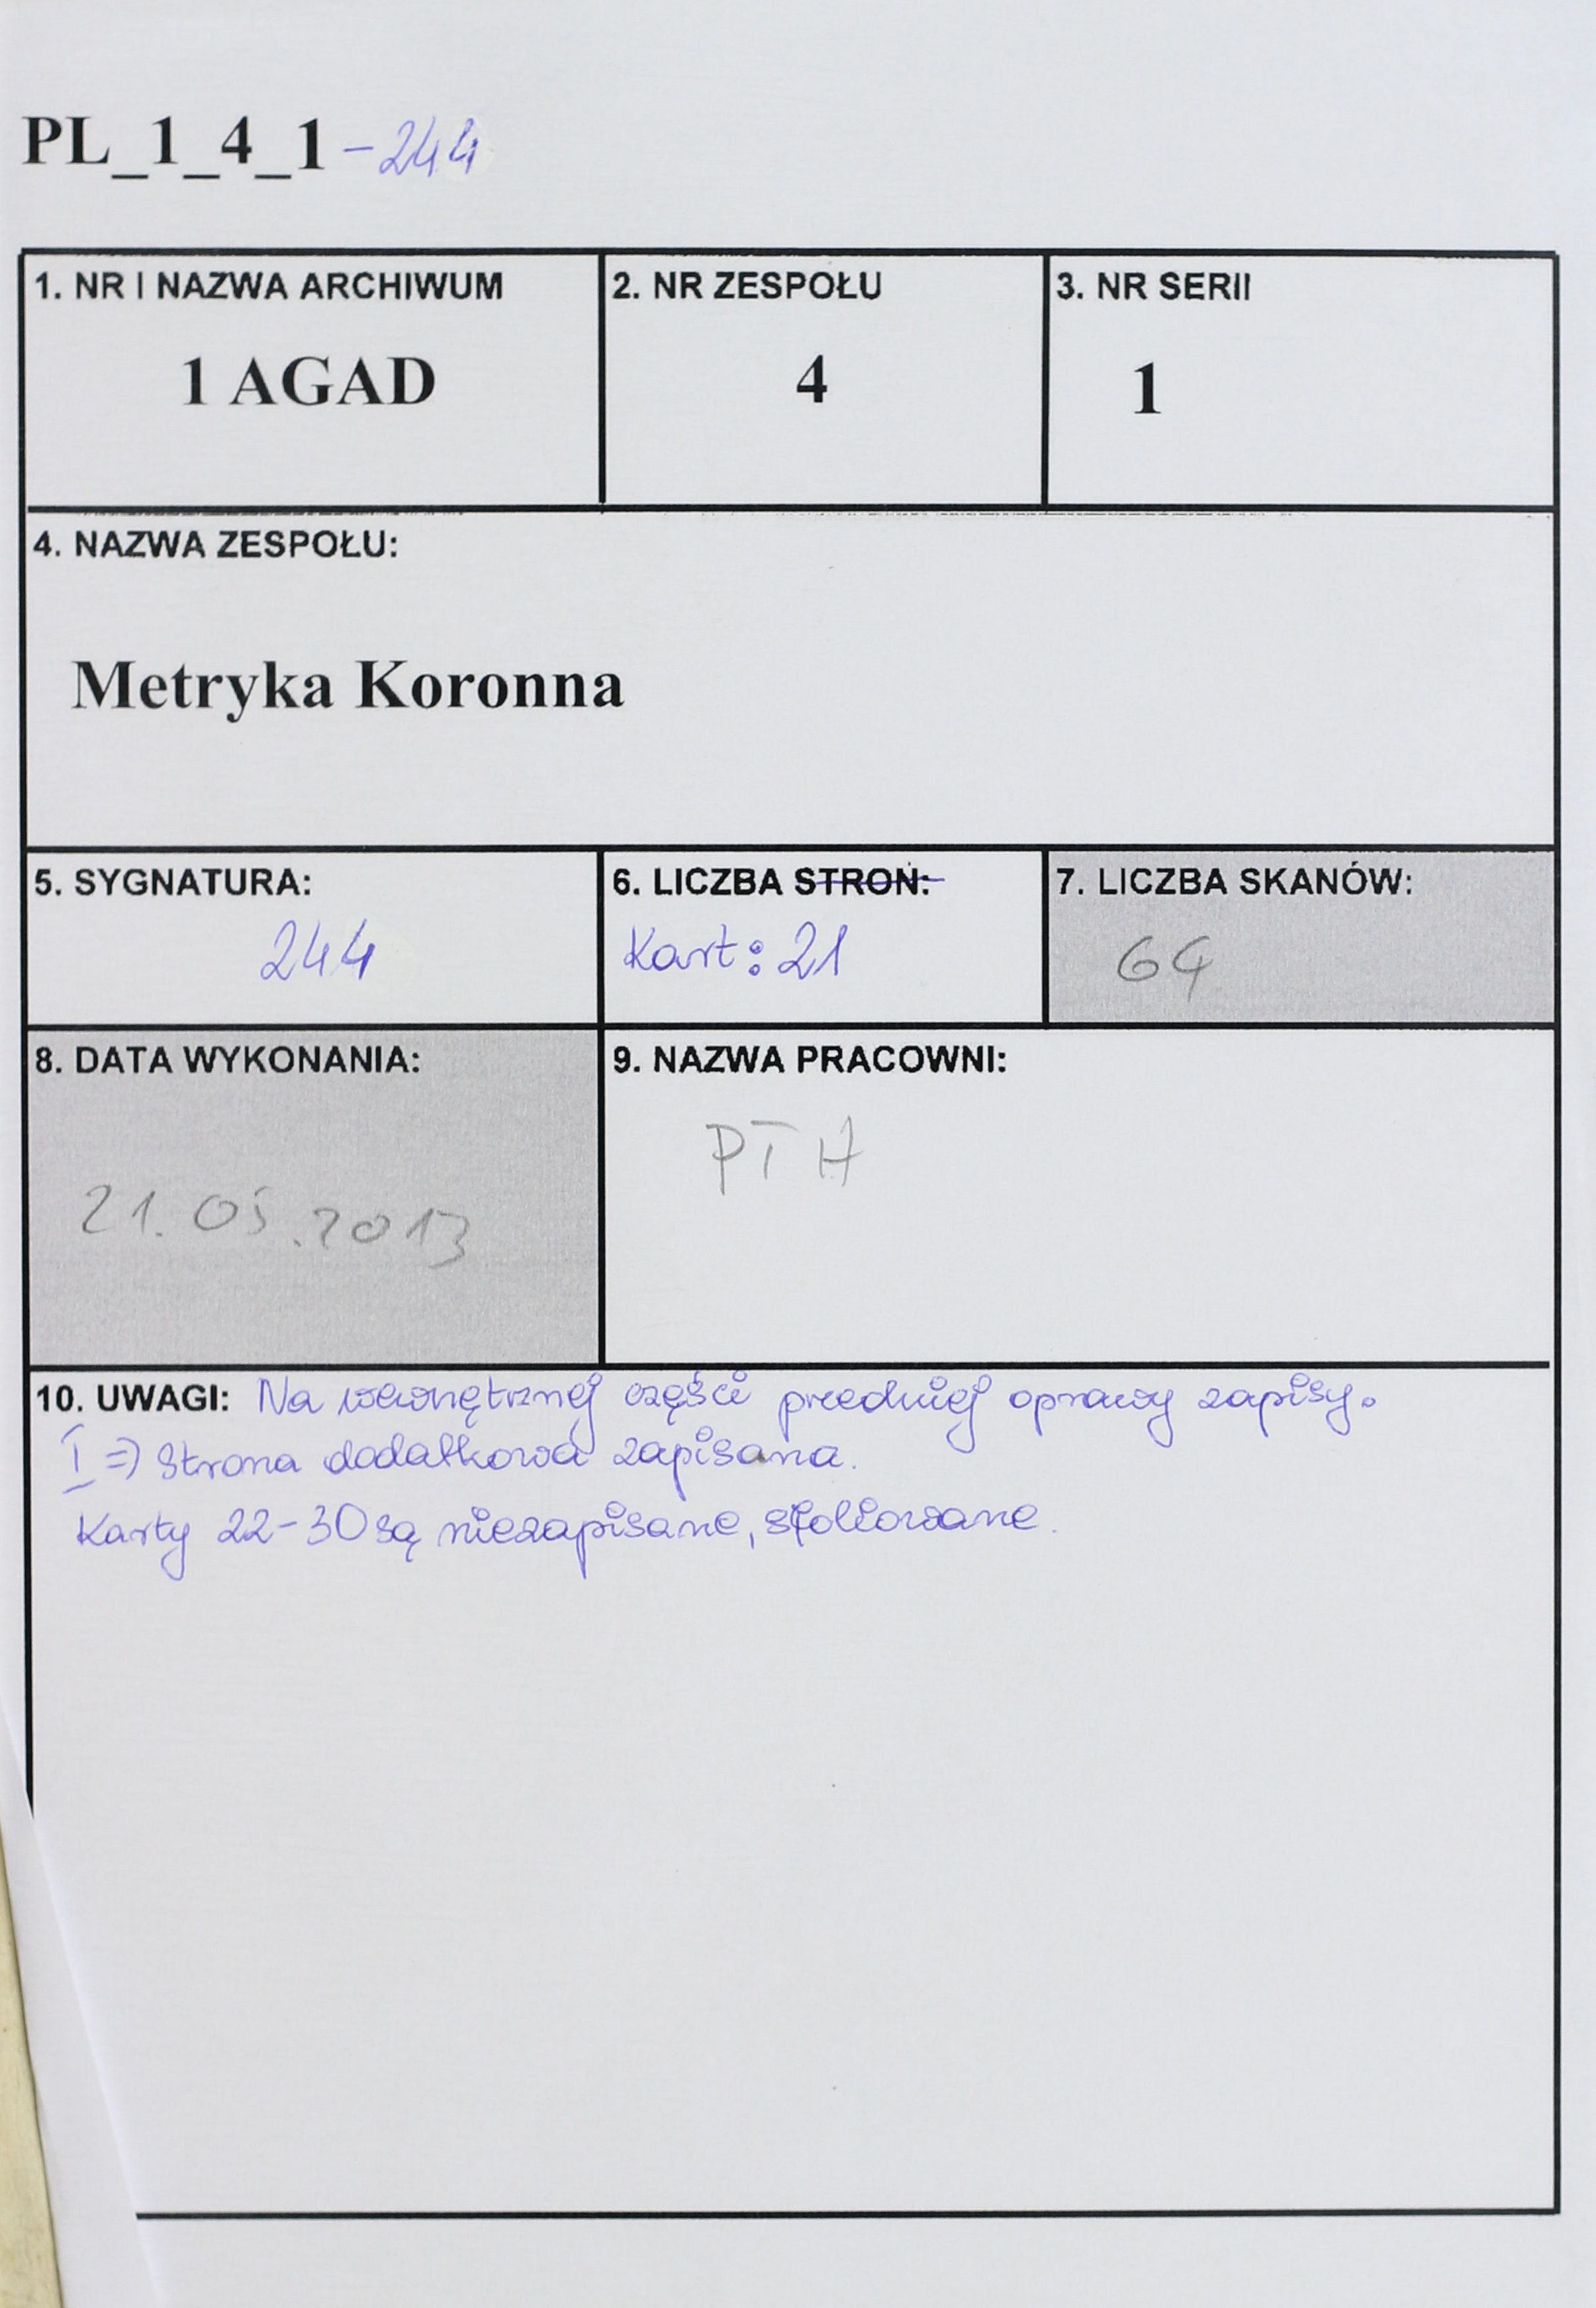 PL_1_4_1 - 244
1. NR I NAZWA ARCHIWUM
1 AGAD
2. NR ZESPOŁU
4
3. NR SERII
1
4. NAZWA ZESPOŁU:
Metryka Koronna
5. SYGNATURA:
244
6. LICZBA STRON:
Kart: 21
7. LICZBA SKANÓW:
64
8. DATA WYKONANIA:
21.05.2013
9. NAZWA PRACOWNI:
PTH
10. UWAGI: Na wewnętrznej części przedniej oprawy zapisy.
I => Strona dodatkowa zapisana.
Karty 22-30 są niezapisane, sfoliowane.